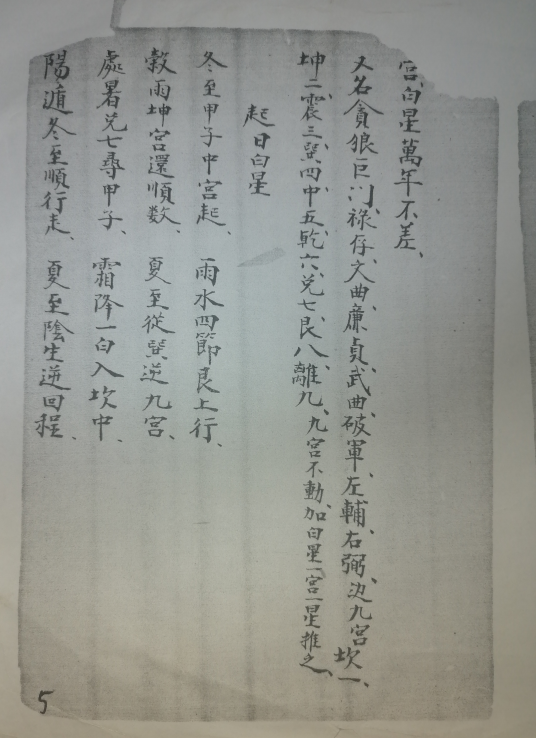 宮、白星萬年不差、
又名貪狼、巨门、祿存、文曲、廉貞、武曲、破軍、左輔、右弼、边九宮坎一、
坤二、震三、巽四、中五、乾六、兌七、艮八、離九、九宮不動、加白星一宮一星推之、
起日白星
冬至甲子中宮起、 雨水四節艮上行、
穀雨坤宮還順数、 夏至從巽逆九宮、
處暑兌七尋甲子、 霜降一白入坎中、
陽遁冬至順行走、 夏至陰生逆回程、
5